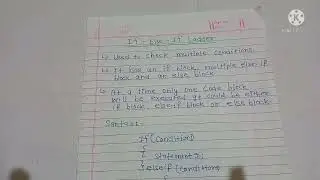 If - else - If Ladder
Used to check multiple conditions.
It has an if block, multiple else if
block and an else block
At a time only one code block
will be executed it could be either
if block, else if block or else block
Syntax:-
If (Condition)
{
Statements;
} else if (condition)
{